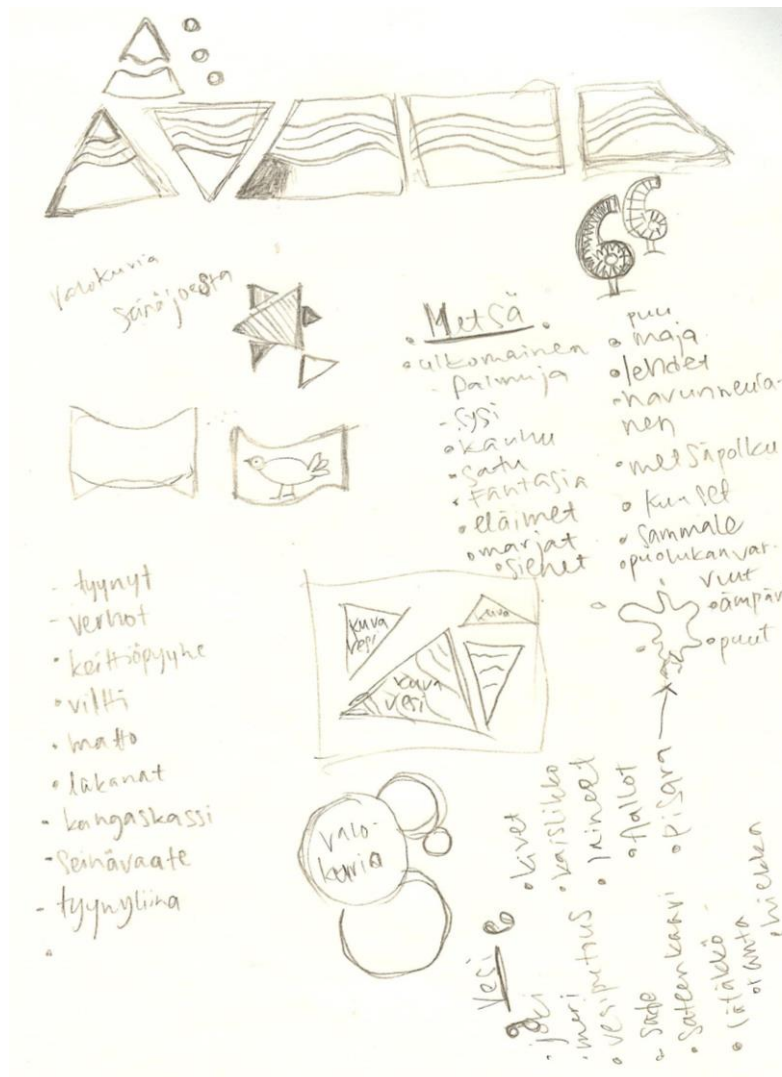 Valokuvia
Metsä
• ulkomainen
- palmuja
- sysi
• kauhu
• satu
• Fantasia
• eläimet
• marjat
• sienet
puu
• maja
• lehdet
• havunneula-
nen
• metsäpolku
• kuuset
• sammale
• puolukanvar-
vut
• puut
- tyynyt
- verhot
• keittiöpyyhe
• viltti
• matto
• lakanat
- kangaskassi
- seinävaate
- tyynyliina
kuva
vesi
kuva
kuva
vesi
valo-
kuvia
Vesi
• joki
• meri
• vesiputous
• sade
• sateenkaari
• lätäkkö
• ranta
• hiekka
• kivet
• kaislikko
• Aallot
• pisara